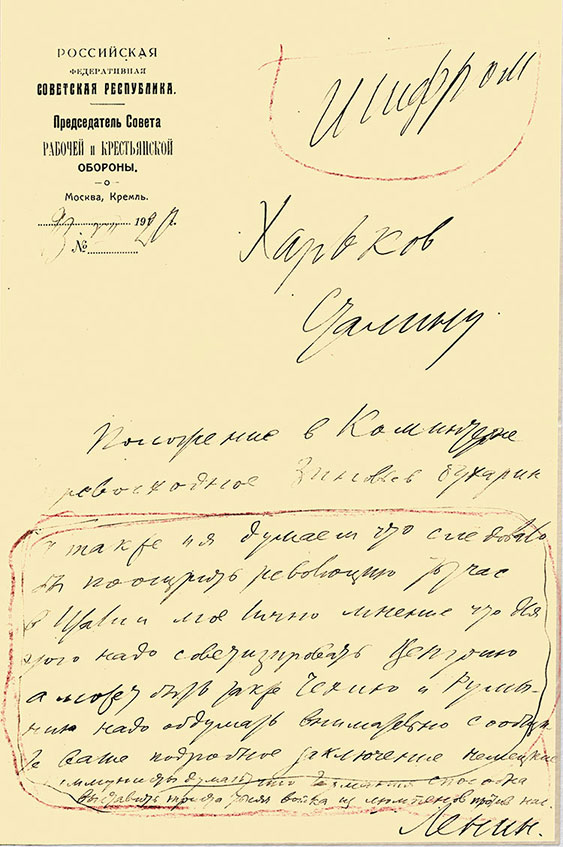 РОССИЙСКАЯ
ФЕДЕРАТИВНАЯ
СОВЕТСКАЯ РЕСПУБЛИКА.
Председатель Совета
РАБОЧЕЙ и КРЕСТЬЯНСКОЙ
ОБОРОНЫ.
Москва, Кремль.
23 192 0 г.
№
Шифром
Харьков
Сталину
Положение в Коминтерне
превосходное Зиновьев Бухарин
а также и я думаем что следовало
бы поощрить революцию тотчас
в Италии мое лично мнение что для
этого надо советизировать Венгрию
а может быть также Чехию и Румы-
нию надо обдумать внимательно сообщи
те Ваше подробное заключение немецкие
коммунисты думают что Германия способна
выставить триста тысяч войска из люмпенов против нас.
Ленин.